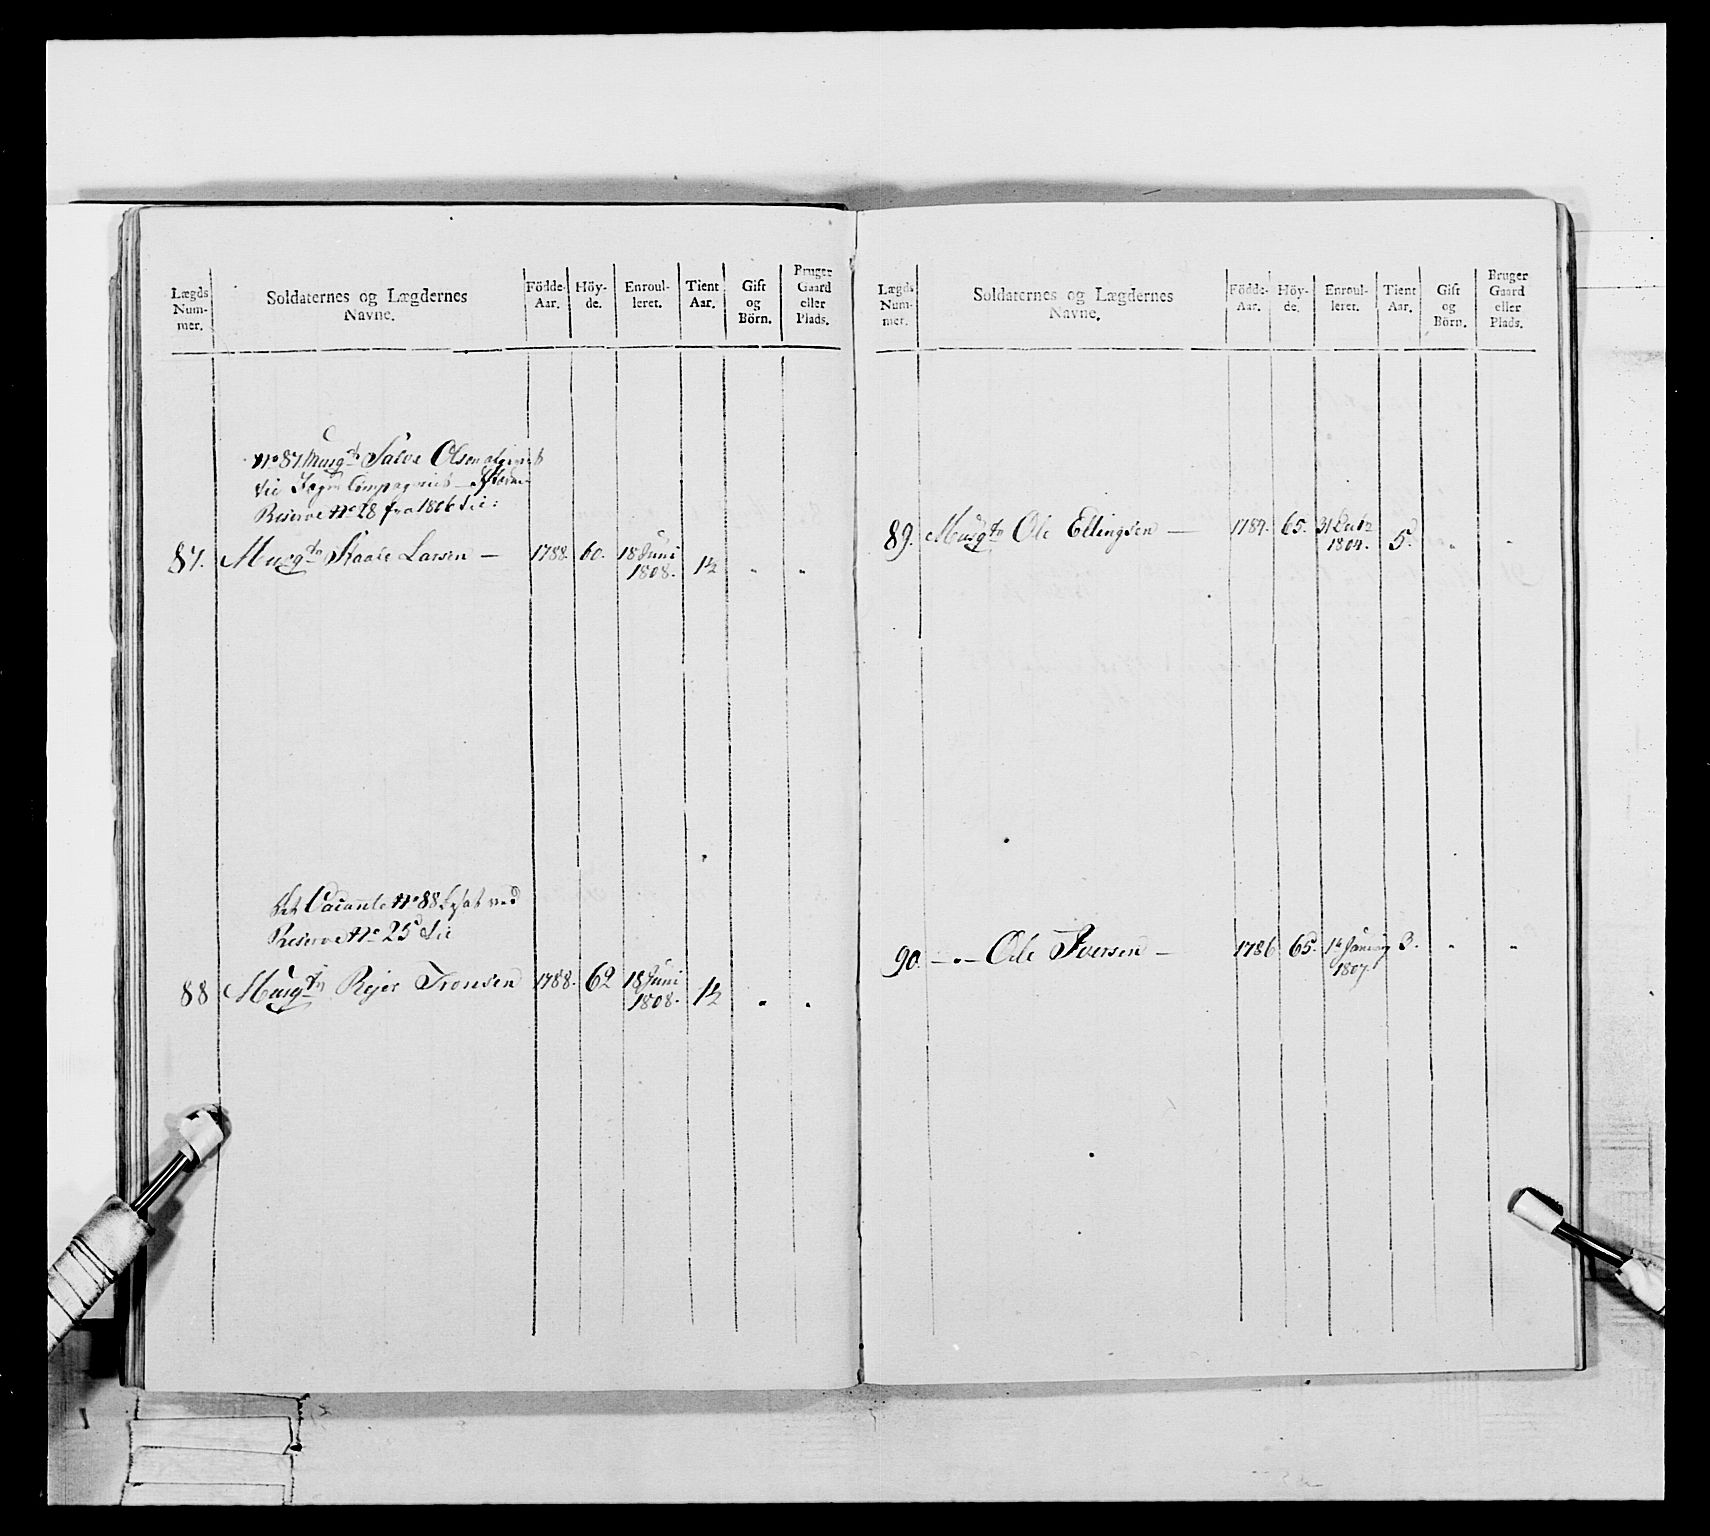 Lægds Num- mer.
Soldaternes og Lægdernes Navne.
Födde- Aar.
Höy- de.
Enroul- leret.
Tient Aar.
Gift og Börn.
Bruger Gaard eller Plads.
No 87 Musqt Salve Olsen afgivet
til Jæger Compagniet
Reserve No 28 fra 1806 til:
87. Musqtr Kaale Larsen — 1788. 60. 18 Juni 1808. 1½ " "
Det Vacante No 88 besat ved
Reserve No 25 til
88 Musqtr Rejer Tronsen 1788. 62 18 Juni 1808. 1½ " "
Lægds Num- mer.
Soldaternes og Lægdernes Navne.
Födde- Aar.
Höy- de.
Enroul- leret.
Tient Aar.
Gift og Börn.
Bruger Gaard eller Plads.
89. Musqtr Ole Ellingsen — 1784. 65. 31 Decbr 1804. 5. " "
90. —"— Ole Iversen — 1786 65. 1t Januarj 1807. 3. " "